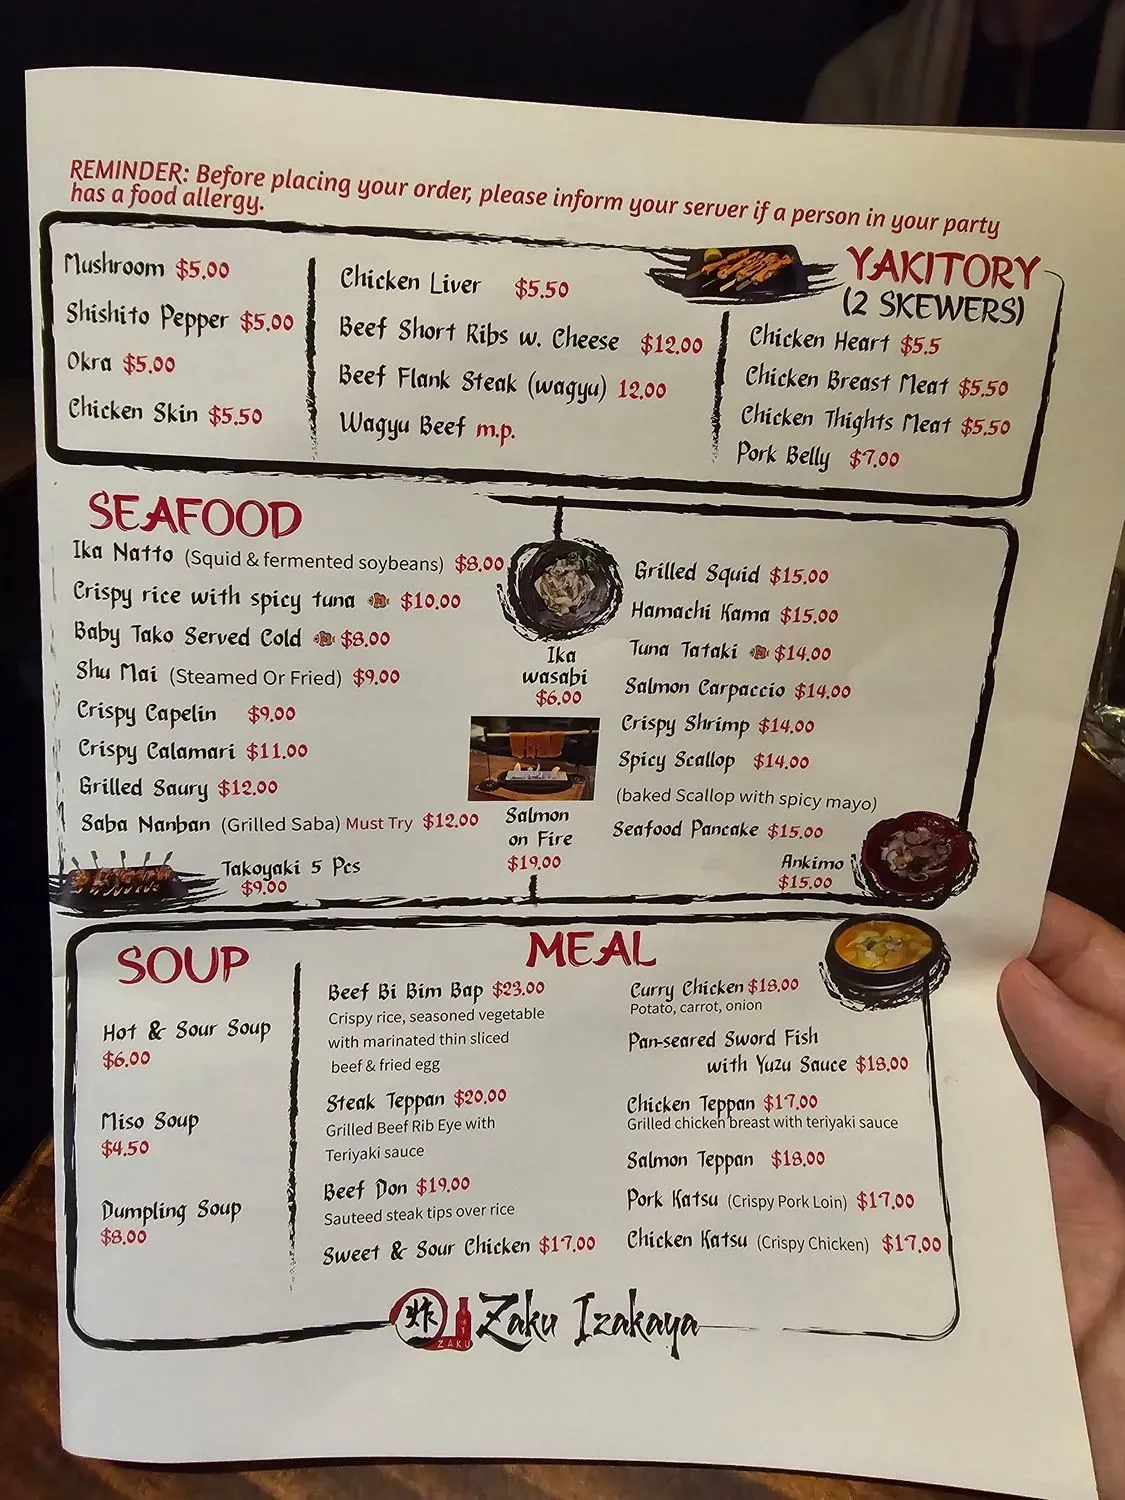 REMINDER: Before placing your order, please inform your server if a person in your party
has a food allergy.
YAKITORY
(2 SKEWERS)
Mushroom $5.00
Shishito Pepper $5.00
Okra $5.00
Chicken Skin $5.50
Chicken Liver $5.50
Beef Short Ribs w. Cheese $12.00
Beef Flank Steak (wagyu) 12.00
Wagyu Beef m.p.
Chicken Heart $5.5
Chicken Breast Meat $5.50
Chicken Thights Meat $5.50
Pork Belly $7.00
SEAFOOD
Ika Natto (Squid & fermented soybeans) $8.00
Crispy rice with spicy tuna $10.00
Baby Tako Served Cold $8.00
Shu Mai (Steamed Or Fried) $9.00
Crispy Capelin $9.00
Crispy Calamari $11.00
Grilled Saury $12.00
Saba Nanban (Grilled Saba) Must Try $12.00
Takoyaki 5 Pcs
$9.00
Ika
wasabi
$6.00
Salmon
on Fire
$19.00
Grilled Squid $15.00
Hamachi Kama $15.00
Tuna Tataki $14.00
Salmon Carpaccio $14.00
Crispy Shrimp $14.00
Spicy Scallop $14.00
(baked Scallop with spicy mayo)
Seafood Pancake $15.00
Ankimo
$15.00
SOUP
Hot & Sour Soup
$6.00
Miso Soup
$4.50
Dumpling Soup
$8.00
MEAL
Beef Bi Bim Bap $23.00
Crispy rice, seasoned vegetable
with marinated thin sliced
beef & fried egg
Steak Teppan $20.00
Grilled Beef Rib Eye with
Teriyaki sauce
Beef Don $19.00
Sauteed steak tips over rice
Sweet & Sour Chicken $17.00
Curry Chicken $18.00
Potato, carrot, onion
Pan-seared Sword Fish
with Yuzu Sauce $18.00
Chicken Teppan $17.00
Grilled chicken breast with teriyaki sauce
Salmon Teppan $18.00
Pork Katsu (Crispy Pork Loin) $17.00
Chicken Katsu (Crispy Chicken) $17.00
炸 ZAKU Zaku Izakaya